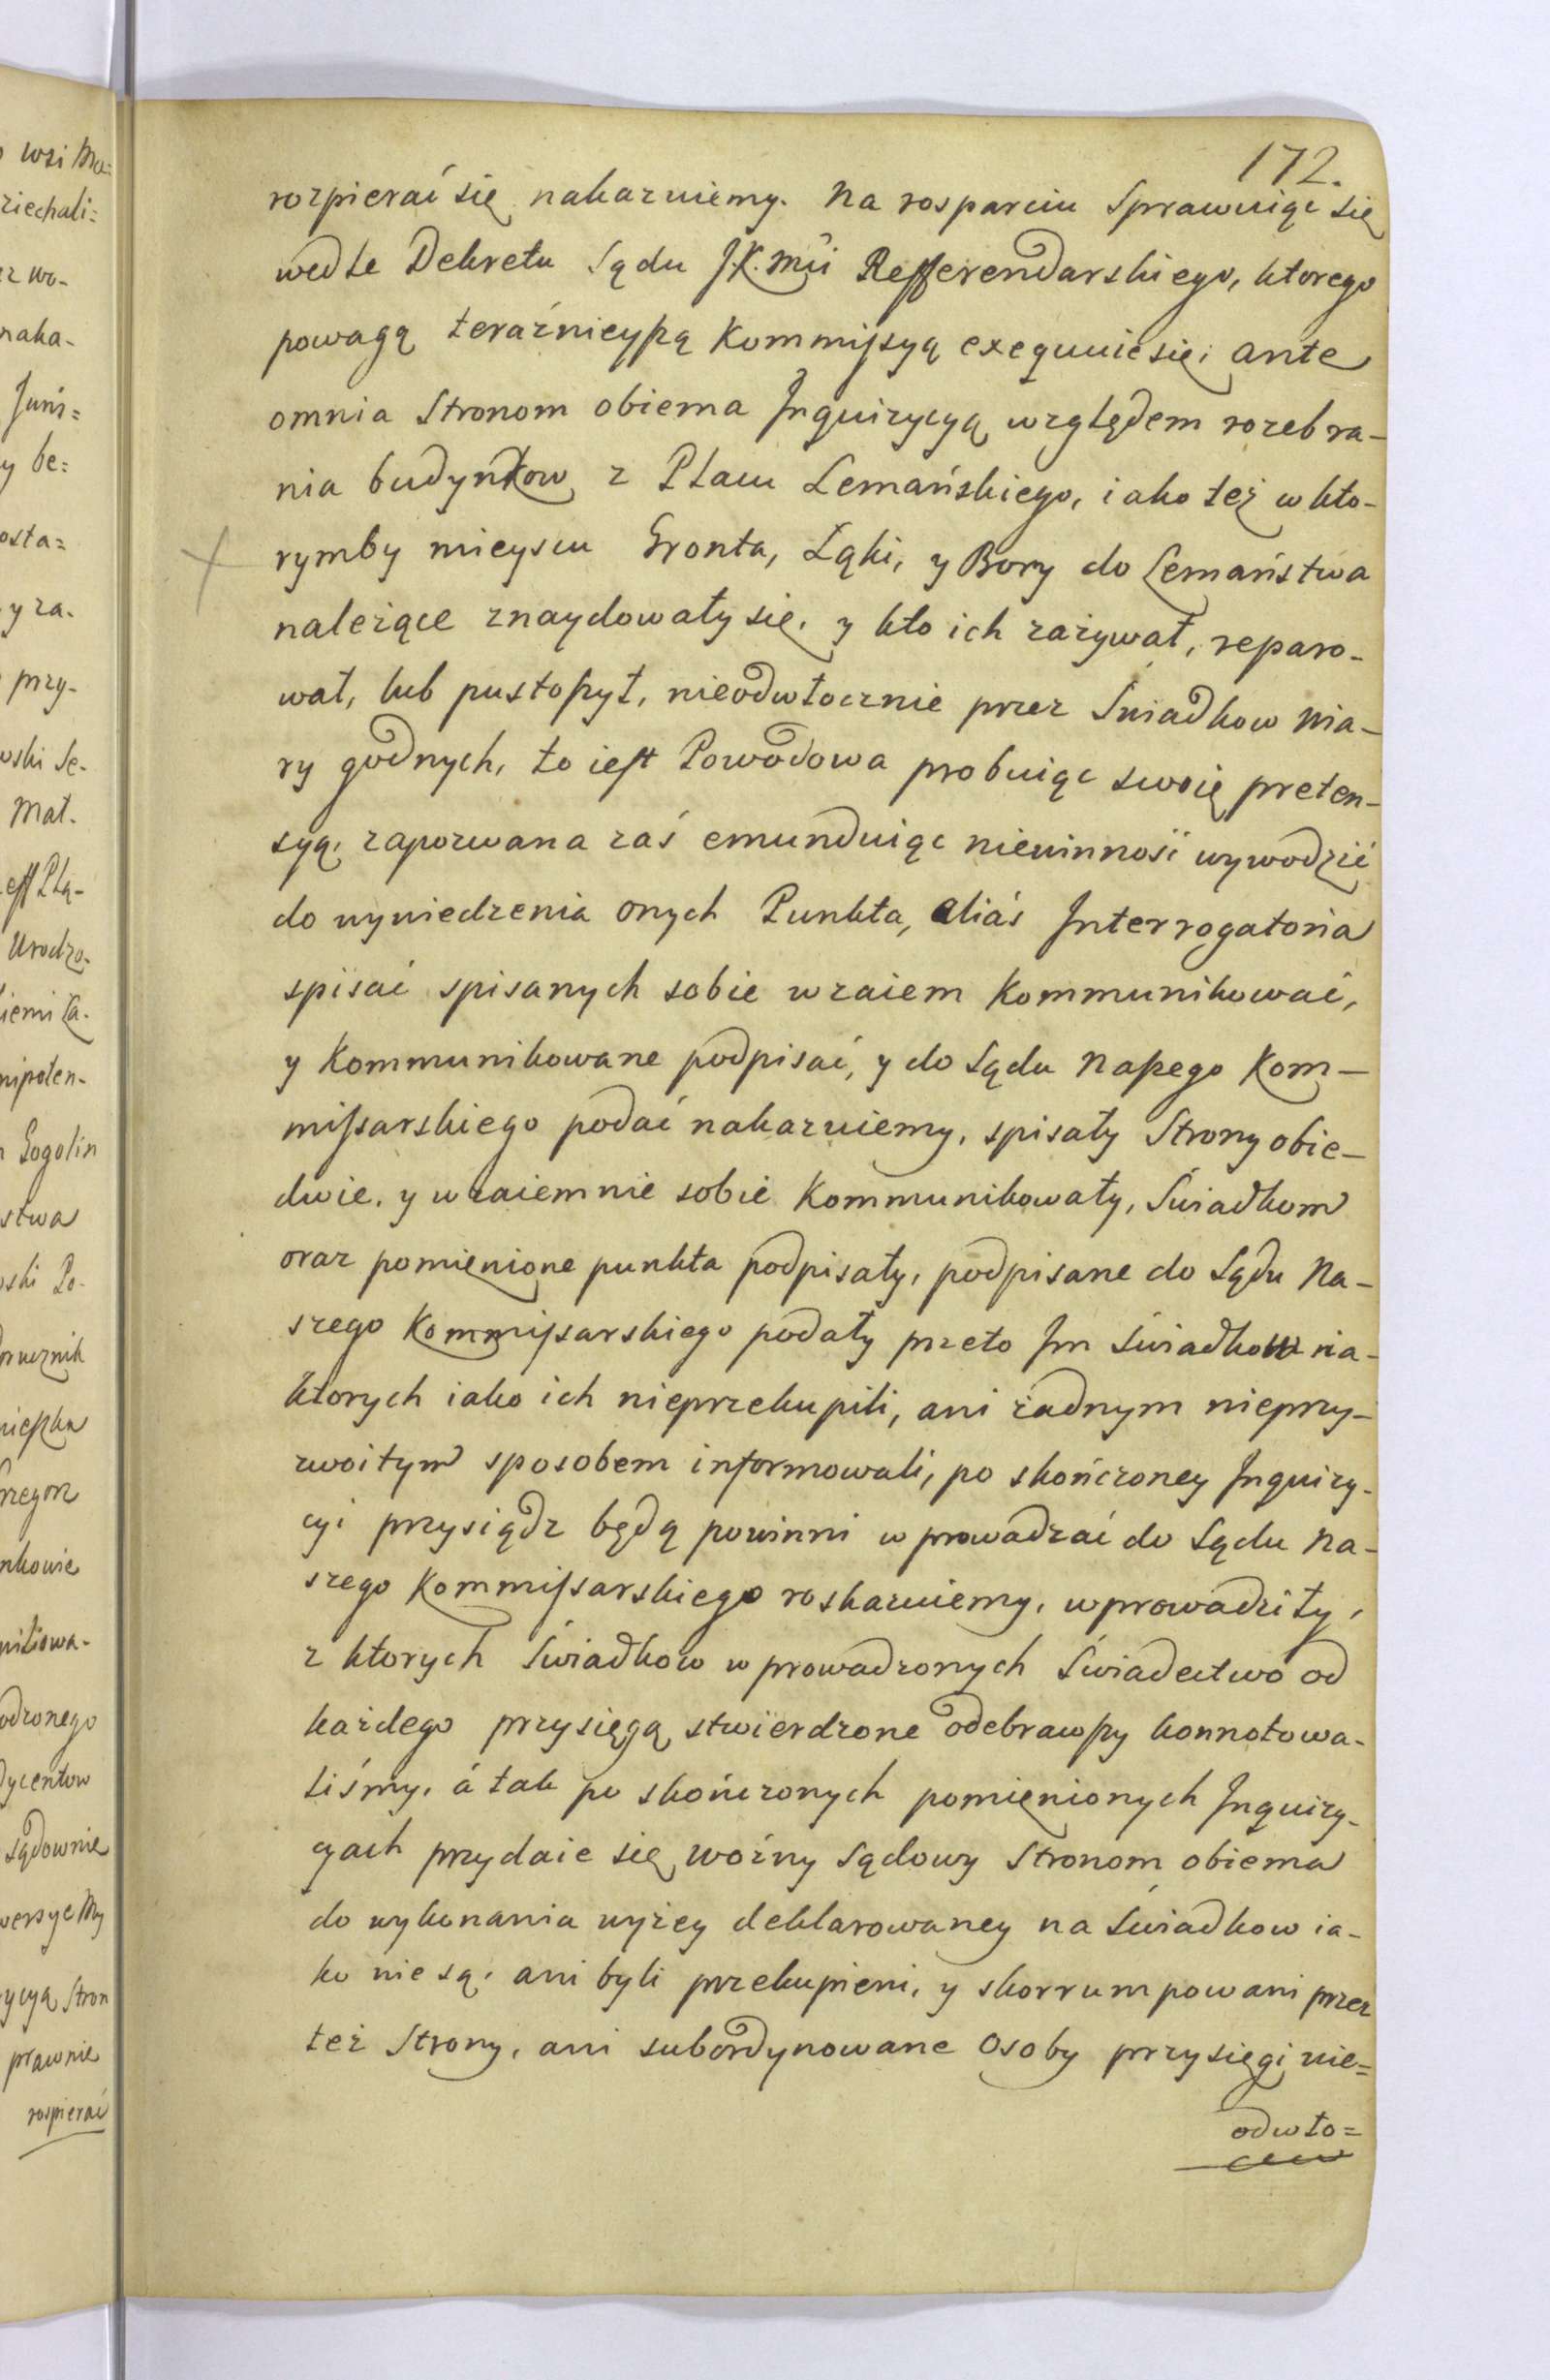 172.
rozpierać się nakazuiemy. Na rosparciu Sprawuiąc się
wedle Dekretu Sądu J.K.Mći Refferendarskiego, ktorego
powagą teraźnieyszą Kommissyą exequuie się, ante
omnia Stronom obiema Inquizycyą względem rozebra-
nia budynkow z Placu Lemańskiego, iako też w kto-
rymby mieyscu Gronta, Łąki, y Bory do Lemaństwa
należące znaydowały się, y kto ich zażywał, reparo-
wał, lub pustoszył, nieodwłocznie przez Swiadkow wia-
ry godnych, to iest Powodowa probuiąc swoię preten-
syą, zapozwana zaś emunduiąc niewinność wywodzić
do wywiedzenia onych Punkta, aliàs Interrogatoria
spisać spisanych sobie wzaiem Kommunikować,
y Kommunikowane podpisać, y do Sądu Naszego Kom-
missarskiego podać nakazuiemy, spisały Strony obie-
dwie, y wzaiemnie sobie Kommunikowały, Swiadkom
oraz pomienione punkta podpisały, podpisane do Sądu Na-
szego Kommissarskiego podały przeto Im Swiadkow na
ktorych iako ich nieprzekupili, ani żadnym nieprzy-
zwoitym sposobem informowali, po skończoney Inquizy-
cyi przysiądz będą powinni wprowadzać do Sądu Na-
szego Kommissarskiego roskazuiemy, wprowadziły,
z ktorych Swiadkow wprowadzonych Swiadectwo od
każdego przysięgą stwierdzone odebrawszy konnotowa-
liśmy, á tak po skończonych pomienionych Inquizy-
cyach przydaie się woźny Sądowy Stronom obiema
do wykonania wyżey deklarowaney na Swiadkow ia-
ko nie są, ani byli przekupieni, y skorrumpowani przez
też Strony, ani subordynowane Osoby przysięgi nie=
odwło=
wsi Ma=
ziechali=
ez wo-
naka-
Juris=
y be=
osta=
y za-
przy-
wski Se-
Mat.
eff Plą-
Urodzo-
iemi Za-
nipoten-
Gogolin
stwa
wski Po-
niegon
nkowie
odzonego
dycentow
Sądownie
wersye My
ycyą Stron
prawnie
rospierać